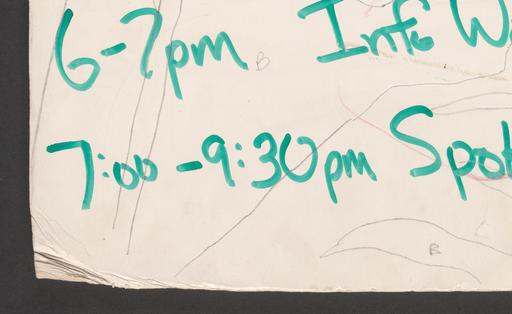 6-7pm Info W
7:00-9:30pm Spok
B
B